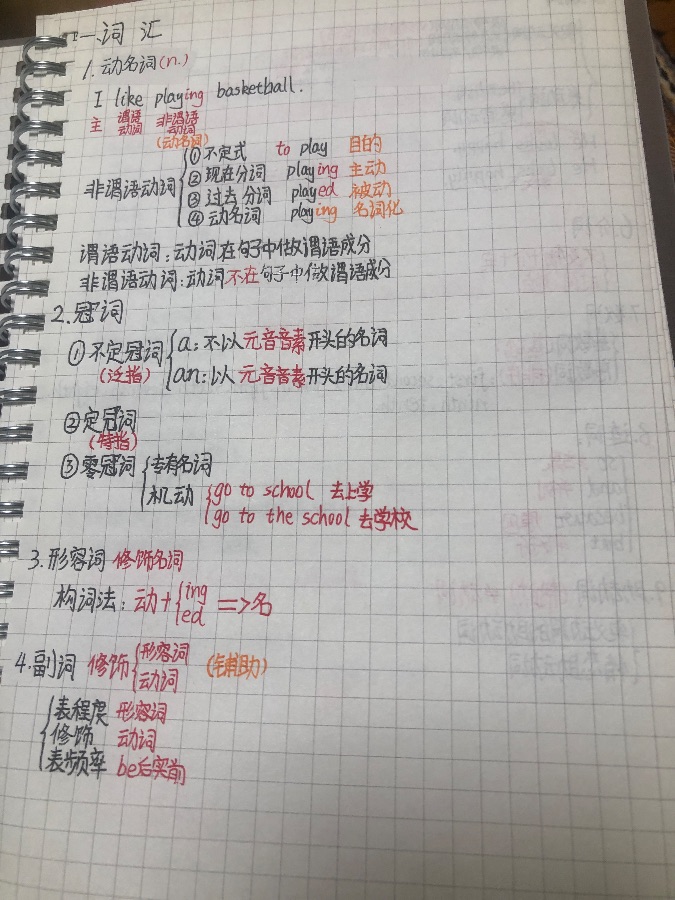 一、词 汇
1. 动名词(n.)
I like playing basketball.
主 谓语动词 非谓语动词
(动名词)
非谓语动词
① 不定式 to play 目的
② 现在分词 playing 主动
③ 过去分词 played 被动
④ 动名词 playing 名词化
谓语动词:动词在句子中做谓语成分
非谓语动词:动词不在句子中做谓语成分
2.冠词
①不定冠词 (泛指)
a:不以元音音素开头的名词
an:以元音音素开头的名词
②定冠词
(特指)
③零冠词 专有名词
机动 go to school 去上学
go to the school 去学校
3.形容词 修饰名词
构词法:动+ ing ed =>名
4.副词 修饰 形容词 动词 (辅助)
表程度 形容词
修饰 动词
表频率 be后实前